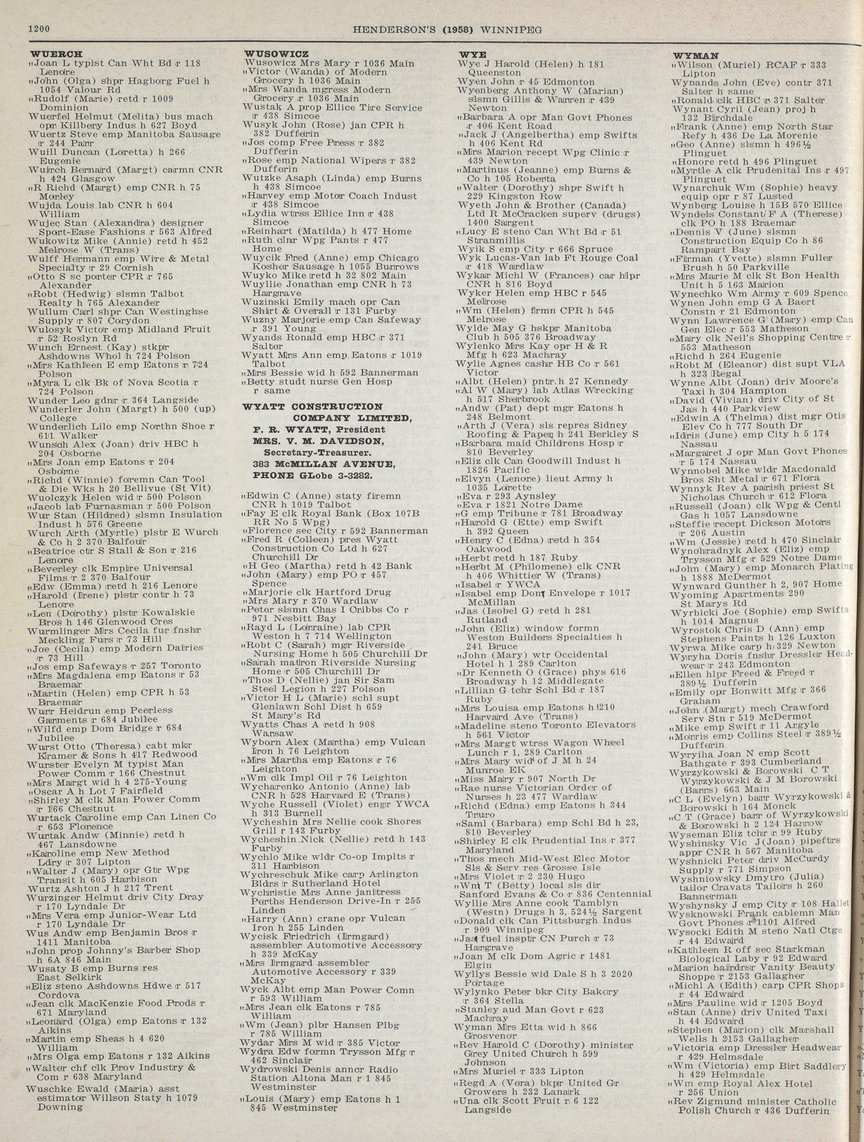 1200
HENDERSON'S (1958) WINNIPEG
WUERCH
„Joan L typist Can Wht Bd r 118
Lenore
„John (Olga) shpr Hagborg Fuel h
1054 Valour Rd
„Rudolf (Marie) retd r 1009
Dominion
Wuerfel Helmut (Melita) bus mach
opr Killbery Indus h 627 Boyd
Wuertz Steve emp Manitoba Sausage
r 244 Parr
Wuill Duncan (Loretta) h 266
Eugenie
Wuirch Bernard (Margt) carmn CNR
h 424 Glasgow
„R Richd (Margt) emp CNR h 75
Morley
Wujda Louis lab CNR h 604
William
Wujec Stan (Alexandra) designer
Sport-Ease Fashions r 563 Alfred
Wukowitz Mike (Annie) retd h 452
Melrose W (Trans)
Wulff Hermann emp Wire & Metal
Specialty r 29 Cornish
„Otto S sc porter CPR r 765
Alexander
„Robt (Hedwig) slsmn Talbot
Realty h 765 Alexander
Wullum Carl shpr Can Westinghse
Supply r 807 Corydon
Wulosyk Victor emp Midland Fruit
r 52 Roslyn Rd
Wunch Ernest (Kay) stkpr
Ashdowns Whol h 724 Polson
„Mrs Kathleen E emp Eatons r 724
Polson
„Myra L clk Bk of Nova Scotia r
724 Polson
Wunder Leo gdnr r 364 Langside
Wunderler John (Margt) h 500 (up)
College
Wunderlich Lilo emp Northn Shoe r
611 Walker
Wunsch Alex (Joan) driv HBC h
204 Osborne
„Mrs Joan emp Eatons r 204
Osborne
„Richd (Winnie) foremn Can Tool
& Die Wks h 20 Bellivue (St Vit)
Wuolczyk Helen wid r 500 Polson
„Jacob lab Furnasman r 500 Polson
Wur Stan (Hildred) slsmn Insulation
Indust h 576 Greene
Wurch Arth (Myrtle) plstr E Wurch
& Co h 2 370 Balfour
„Beatrice ctr S Stall & Son r 216
Lenore
„Beverley clk Empire Universal
Films r 2 370 Balfour
„Edw (Emma) retd h 216 Lenore
„Harold (Irene) plstr contr h 73
Lenore
„Len (Dorothy) plstr Kowalskie
Bros h 146 Glenwood Cres
Wurmlinger Mrs Cecila fur fnshr
Meckling Furs r 73 Hill
„Joe (Cecila) emp Modern Dairies
r 73 Hill
„Jos emp Safeways r 257 Toronto
„Mrs Magdalena emp Eatons r 53
Braemar
„Martin (Helen) emp CPR h 53
Braemar
Wurr Heidrun emp Peerless
Garments r 684 Jubilee
„Wilfd emp Dom Bridge r 684
Jubilee
Wurst Otto (Theresa) cabt mkr
Kramer & Sons h 417 Redwood
Wurster Evelyn M typist Man
Power Comm r 166 Chestnut
„Mrs Margt wid h 4 275-Young
„Oscar A h Lot 7 Fairfield
„Shirley M clk Man Power Comm
r 166 Chestnut
Wurtack Caroline emp Can Linen Co
r 653 Florence
Wurtak Andw (Minnie) retd h
467 Lansdowne
„Karoline emp New Method
Ldry r 307 Lipton
„Walter J (Mary) opr Gtr Wpg
Transit h 605 Harbison
Wurtz Ashton J h 217 Trent
Wurzinger Helmut driv City Dray
r 170 Lyndale Dr
„Mrs Vera emp Junior-Wear Ltd
r 170 Lyndale Dr
Wus Andw emp Benjamin Bros r
1411 Manitoba
„John prop Johnny's Barber Shop
h 6A 846 Main
Wusaty B emp Burns res
East Selkirk
„Eliz steno Ashdowns Hdwe r 517
Cordova
„Jean clk MacKenzie Food Prods r
671 Maryland
„Leonard (Olga) emp Eatons r 132
Aikins
„Martin emp Sheas h 4 620
William
„Mrs Olga emp Eatons r 132 Aikins
„Walter chf clk Prov Industry &
Com r 638 Maryland
Wuschke Ewald (Maria) asst
estimator Willson Staty h 1079
Downing
WUSOWICZ
Wusowicz Mrs Mary r 1036 Main
„Victor (Wanda) of Modern
Grocery h 1036 Main
„Mrs Wanda mgress Modern
Grocery r 1036 Main
Wustak A prop Ellice Tire Service
r 438 Simcoe
Wusyk John (Rose) jan CPR h
382 Dufferin
„Jos comp Free Press r 382
Dufferin
„Rose emp National Wipers r 382
Dufferin
Wutzke Asaph (Linda) emp Burns
h 438 Simcoe
„Harvey emp Motor Coach Indust
r 438 Simcoe
„Lydia wtrss Ellice Inn r 438
Simcoe
„Reinhart (Matilda) h 477 Home
„Ruth clnr Wpg Pants r 477
Home
Wuycik Fred (Anne) emp Chicago
Kosher Sausage h 1055 Burrows
Wuyko Mike retd h 32 802 Main
Wuyllie Jonathan emp CNR h 73
Hargrave
Wuzinski Emily mach opr Can
Shirt & Overall r 131 Furby
Wuzny Marjorie emp Can Safeway
r 391 Young
Wyands Ronald emp HBC r 371
Salter
Wyatt Mrs Ann emp Eatons r 1019
Talbot
„Mrs Bessie wid h 592 Bannerman
„Betty studt nurse Gen Hosp
r same
WYATT CONSTRUCTION
COMPANY LIMITED,
F. R. WYATT, President
MRS. V. M. DAVIDSON,
Secretary-Treasurer.
383 McMILLAN AVENUE,
PHONE GLobe 3-3282.
„Edwin C (Anne) staty firemn
CNR h 1019 Talbot
„Fay E clk Royal Bank (Box 107B
RR No 5 Wpg)
„Florence sec City r 592 Bannerman
„Fred R (Colleen) pres Wyatt
Construction Co Ltd h 627
Churchill Dr
„H Geo (Martha) retd h 42 Bank
„John (Mary) emp PO r 457
Spence
„Marjorie clk Hartford Drug
„Mrs Mary r 370 Wardlaw
„Peter slsmn Chas I Cribbs Co r
971 Nesbitt Bay
„Rayd L (Lorraine) lab CPR
Weston h 7 714 Wellington
„Robt C (Sarah) mgr Riverside
Nursing Home h 505 Churchill Dr
„Sarah matron Riverside Nursing
Home r 505 Churchill Dr
„Thos D (Nellie) jan Sir Sam
Steel Legion h 227 Polson
„Victor H L (Marie) schl supt
Glenlawn Schl Dist h 659
St Mary's Rd
Wyatts Chas A retd h 908
Warsaw
Wyborn Alex (Martha) emp Vulcan
Iron h 76 Leighton
„Mrs Martha emp Eatons r 76
Leighton
„Wm clk Impl Oil r 76 Leighton
Wycharenko Antonio (Anne) lab
CNR h 528 Harvard E (Trans)
Wyche Russell (Violet) engr YWCA
h 313 Burnell
Wycheshin Mrs Nellie cook Shores
Grill r 143 Furby
Wycheshin Nick (Nellie) retd h 143
Furby
Wychlo Mike wldr Co-op Implts r
311 Harbison
Wychreschuk Mary emp Arlington
Bldrs r Sutherland Hotel
Wychristie Mrs Anne janitress
Perths Henderson Drive-In r 255
Linden
„Harry (Ann) crane opr Vulcan
Iron h 255 Linden
Wycisk Friedrich (Irmgard)
assembler Automotive Accessory
h 339 McKay
„Mrs Irmgard assembler
Automotive Accessory r 339
McKay
Wyck Albt emp Man Power Comn
r 593 William
„Mrs Jean clk Eatons r 785
William
„Wm (Jean) plbr Hansen Plbg
r 785 William
Wydar Mrs M wid r 385 Victor
Wydra Edw formn Trysson Mfg r
462 Sinclair
Wydrowski Denis anncr Radio
Station Altona Man r 1 845
Westminster
„Louis (Mary) emp Eatons h 1
845 Westminster
WYE
Wye J Harold (Helen) h 181
Queenston
Wyen John r 45 Edmonton
Wyenberg Anthony W (Marian)
slsmn Gillis & Warren r 439
Newton
„Barbara A opr Man Govt Phones
r 406 Kent Road
„Jack J (Angelbertha) emp Swifts
h 406 Kent Rd
„Mrs Marion recept Wpg Clinic r
439 Newton
„Martinus (Jeanne) emp Burns &
Co h 105 Roberta
„Walter (Dorothy) shpr Swift h
229 Kingston Row
Wyeth John & Brother (Canada)
Ltd R McCracken superv (drugs)
1400 Sargent
„Lucy E steno Can Wht Bd r 51
Stranmillis
Wyik S emp City r 666 Spruce
Wyk Lucas-Van lab Ft Rouge Coal
r 418 Wardlaw
Wykar Michl W (Frances) car hlpr
CNR h 816 Boyd
Wyker Helen emp HBC r 545
Melrose
„Wm (Helen) firmn CPR h 545
Melrose
Wylde May G hskpr Manitoba
Club h 505 376 Broadway
Wylenko Mrs Kay opr H & R
Mfg h 623 Machray
Wylie Agnes cashr HB Co r 561
Victor
„Albt (Helen) pntr h 27 Kennedy
„Al W (Mary) lab Atlas Wrecking
h 517 Sherbrook
„Andw (Pat) dept mgr Eatons h
248 Belmont
„Arth J (Vera) sls repres Sidney
Roofing & Paper h 241 Berkley S
„Barbara maid Childrens Hosp r
810 Beverley
„Eliz clk Can Goodwill Indust h
1826 Pacific
„Elvyn (Lenore) lieut Army h
1035 Lorette
„Eva r 293 Aynsley
„Eva r 1821 Notre Dame
„G emp Tribune r 781 Broadway
„Harold G (Ette) emp Swift
h 392 Queen
„Henry C (Edna) retd h 354
Oakwood
„Herbt retd h 187 Ruby
„Herbt M (Philomene) clk CNR
h 406 Whittier W (Trans)
„Isabel r YWCA
„Isabel emp Dom Envelope r 1017
McMillan
„Jas (Isobel G) retd h 281
Rutland
„John (Eliz) window formn
Weston Builders Specialties h
241 Bruce
„John (Mary) wtr Occidental
Hotel h 1 289 Carlton
„Dr Kenneth O (Grace) phys 616
Broadway h 12 Middlegate
„Lillian G tchr Schl Bd r 187
Ruby
„Mrs Louisa emp Eatons h 1210
Harvard Ave (Trans)
„Madeline steno Toronto Elevators
h 561 Victor
„Mrs Margt wtrss Wagon Wheel
Lunch r 1, 289 Carlton
„Mrs Mary wid of J M h 24
Munroe EK
„Miss Mary r 907 North Dr
„Rae nurse Victorian Order of
Nurses h 23 477 Wardlaw
„Richd (Edna) emp Eatons h 344
Truro
„Saml (Barbara) emp Schl Bd h 23,
810 Beverley
„Shirley E clk Prudential Ins r 377
Maryland
„Thos mech Mid-West Elec Motor
Sls & Serv res Grosse Isle
„Mrs Violet r 2 230 Hugo
„Wm T (Betty) local sls dir
Sanford Evans & Co r 836 Centennial
Wyllie Mrs Anne cook Tamblyn
(Westn) Drugs h 3, 524½ Sargent
„Donald clk Can Pittsburgh Indus
r 909 Winnipeg
„Jas fuel insptr CN Purch r 73
Hargrave
„Joan M clk Dom Agric r 1481
Elgin
Wyllys Bessie wid Dale S h 3 2020
Portage
Wylynko Peter bkr City Bakery
r 364 Stella
„Stanley aud Man Govt r 623
Machray
Wyman Mrs Etta wid h 866
Grosvenor
„Rev Harold C (Dorothy) minister
Grey United Church h 599
Johnson
„Mrs Muriel r 333 Lipton
„Regd A (Vera) bkpr United Gr
Growers h 232 Lanark
„Una clk Scott Fruit r 6 122
Langside
WYMAN
„Wilson (Muriel) RCAF r 333
Lipton
Wynands John (Eve) contr 371
Salter h same
„Ronald clk HBC r 371 Salter
Wynant Cyril (Jean) proj h
132 Birchdale
„Frank (Anne) emp North Star
Refy h 436 De La Morenie
„Geo (Anne) slsmn h 496½
Plinguet
„Honore retd h 496 Plinguet
„Myrtle A clk Prudental Ins r 497
Plinguet
Wynarchuk Wm (Sophie) heavy
equip opr r 87 Lusted
Wynberg Louise h 15B 570 Ellice
Wyndels Constant F A (Therese)
clk PO h 188 Braemar
„Dennis V (June) slsmn
Construction Equip Co h 86
Rampart Bay
„Firman (Yvette) slsmn Fuller
Brush h 50 Parkville
„Mrs Marie M clk St Bon Health
Unit h 5 163 Marion
Wynechko Wm Army r 609 Spence
Wynen John emp G A Baert
Constn r 21 Edmonton
Wynn Lawrence G (Mary) emp Can
Gen Elec r 553 Matheson
„Mary clk Neil's Shopping Centre r
553 Matheson
„Richd h 264 Eugenie
„Robt M (Eleanor) dist supt VLA
h 323 Regal
Wynne Albt (Joan) driv Moore's
Taxi h 304 Hampton
„David (Vivian) driv City of St
Jas h 440 Parkview
„Edwin A (Thelma) dist mgr Otis
Elev Co h 777 South Dr
„Idris (June) emp City h 5 174
Nassau
„Margaret J opr Man Govt Phones
r 5 174 Nassau
Wynnobel Mike wldr Macdonald
Bros Sht Metal r 671 Flora
Wynnyk Rev A parish priest St
Nicholas Church r 612 Flora
„Russell (Joan) clk Wpg & Centl
Gas h 1057 Lansdowne
„Steffie recept Dickson Motors
r 206 Austin
„Wm (Jessie) retd h 470 Sinclair
Wynohradnyk Alex (Eliz) emp
Trysson Mfg r 529 Notre Dame
„John (Mary) emp Monarch Plating
h 1888 McDermot
Wynward Gunther h 2, 907 Home
Wyoming Apartments 290
St Marys Rd
Wyrbicki Joe (Sophie) emp Swifts
h 1014 Magnus
Wyrostok Chris D (Ann) emp
Stephens Paints h 126 Luxton
Wyrwa Mike carp h 329 Newton
Wyryha Doris fnshr Dressler Head-
wear r 243 Edmonton
„Ellen hlpr Freed & Freed r
389½ Dufferin
„Emily opr Bonwitt Mfg r 366
Graham
„John (Margt) mech Crawford
Serv Stn r 519 McDermot
„Mike emp Swift r 11 Argyle
„Morris emp Collins Steel r 389½
Dufferin
Wyryiha Joan N emp Scott
Bathgate r 393 Cumberland
Wyrzykowski & Borowski C T
Wyrzykowski & J M Borowski
(Barrs) 663 Main
„C L (Evelyn) barr Wyrzykowski &
Borowski h 164 Monck
„C T (Grace) barr of Wyrzykowski
& Borowski h 2 124 Harrow
Wyseman Eliz tchr r 99 Ruby
Wyshinsky Vic J (Joan) pipefitrs
appr CNR h 567 Manitoba
Wyshnicki Peter driv McCurdy
Supply r 771 Simpson
Wyshniowsky Dmytro (Julia)
tailor Cravats Tailors h 260
Bannerman
Wyshynsky J emp City r 108 Hallet
Wysknowski Frank cablemn Man
Govt Phones r 1101 Alfred
Wysocki Edith M steno Natl Ctge
r 44 Edward
„Kathleen R off sec Starkman
Biological Laby r 92 Edward
„Marion hairdrsr Vanity Beauty
Shoppe r 2153 Gallagher
„Michl A (Edith) carp CPR Shops
r 44 Edward
„Mrs Pauline wid r 1205 Boyd
„Stan (Anne) driv United Taxi
h 44 Edward
„Stephen (Marion) clk Marshall
Wells h 2153 Gallagher
„Victoria emp Dressler Headwear
r 429 Helmsdale
„Wm (Victoria) emp Birt Saddlery
h 429 Helmsdale
„Wm emp Royal Alex Hotel
r 256 Union
„Rev Zigmund minister Catholic
Polish Church r 436 Dufferin